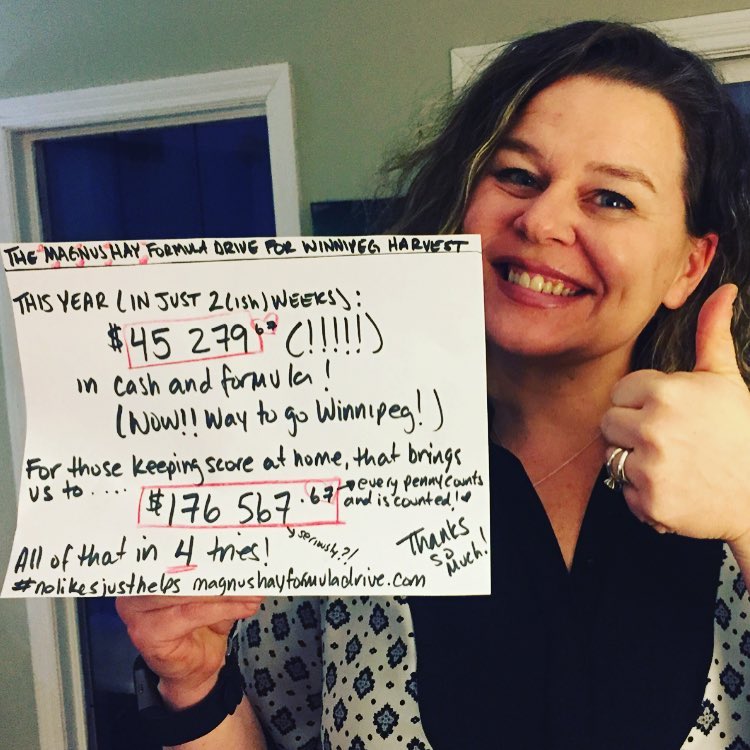 THE MAGNUS HAY FORMULA DRIVE FOR WINNIPEG HARVEST
THIS YEAR (IN JUST 2(ish) WEEKS):
$45 279.67 (!!!!!)
in cash and formula!
(Wow!! Way to go Winnipeg!)
For those keeping score at home, that brings
us to ....
$176 567.67
every penny counts
and is counted!
seriously?!
All of that in 4 tries!
Thanks
so
much!
#nolikesjusthelps magnushayformuladrive.com